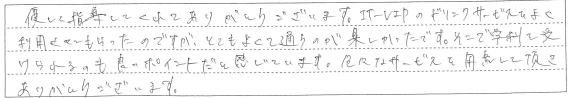 優しく指導してくれてありがとうございます。IT-VIPのドリンクサービスもよく
利用させてもらったのですが、とてもよくて通うのが楽しかったです。そこで学割も受
けられるのも良いポイントだと感じています。色々なサービスを用意して頂き
ありがとうございます。